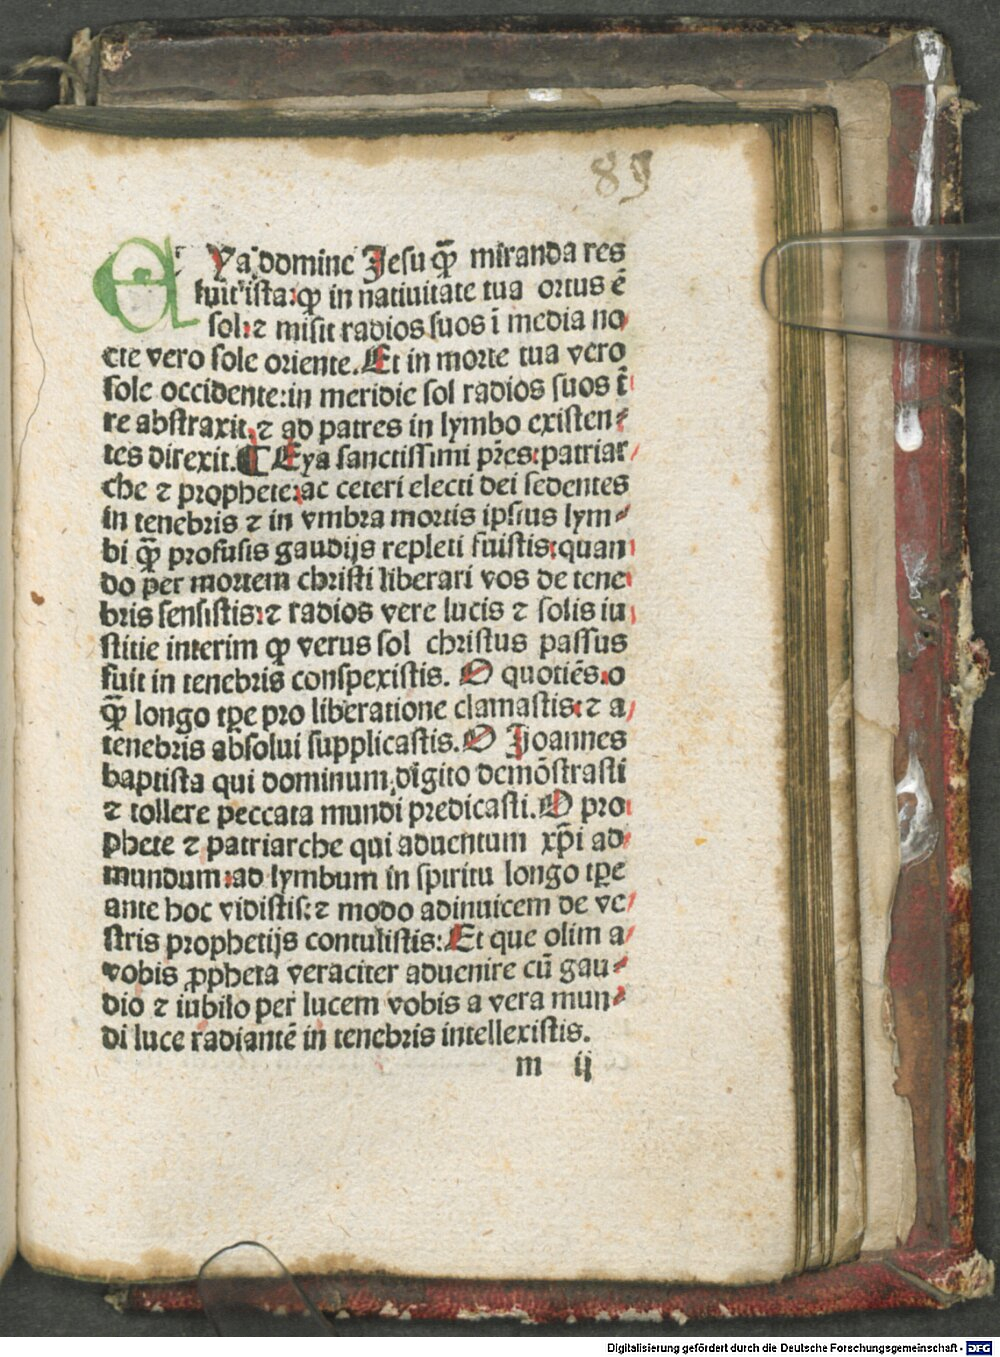 89
EYa domine Jesu qꝫ̄ miranda res
fuit ista: ꝙ in nativitate tua ortus ē
sol: ⁊ misit radios suos ī media no
cte vero sole oriente. Et in morte tua vero
sole occidente: in meridie sol radios suos t̄
re abstraxit, ⁊ ad patres in lymbo existen⸗
tes direxit. ¶ Eya sanctissimi pr̄es: patriar
che ⁊ prophete: ac ceteri electi dei sedentes
in tenebris ⁊ in vmbra mortis ipsius lym⸗
bi qꝫ̄ profusis gaudijs repleti fuistis: quan
do per mortem christi liberari vos de tene
bris sensistis: ⁊ radios vere lucis ⁊ solis iu
stitie interim ꝙ verus sol christus passus
fuit in tenebris conspexistis. O quotiēs. o
qꝫ̄ longo tꝑe pro liberatione clamastis: ⁊ a
tenebris absolui supplicastis. O Joannes
baptista qui dominum, digito demōstrasti
⁊ tollere peccata mundi predicasti. O pro
phete ⁊ patriarche qui aduentum xp̄i ad
mundum: ad lymbum in spiritu longo tꝑe
ante hoc vidistis: ⁊ modo adinuicem de ve
stris prophetijs contulistis: Et que olim a
vobis ꝓpheta veraciter aduenire cū gau⸗
dio ⁊ iubilo per lucem vobis a vera mun⸗
di luce radiantē in tenebris intellexistis.
m ij
Digitalisierung gefördert durch die Deutsche Forschungsgemeinschaft - DFG